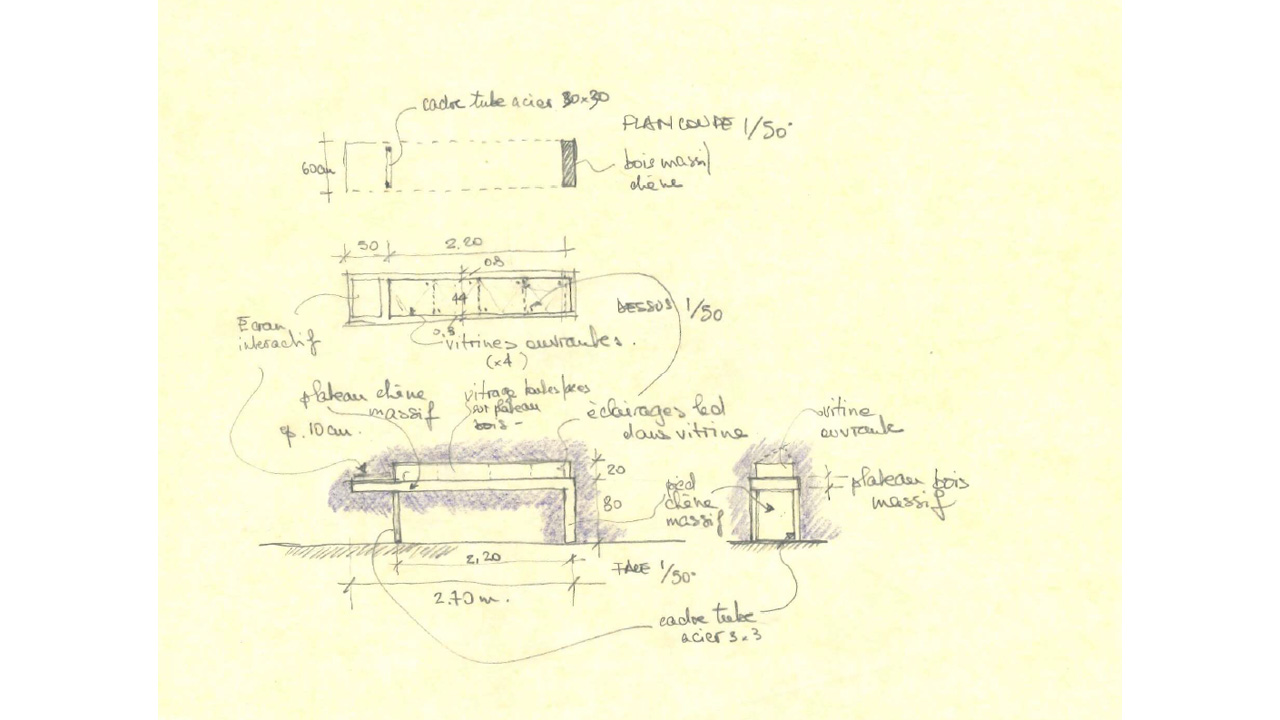 cadre tube acier 30x30
PLAN COUPE 1/50°
60cm
bois massif
chêne
50
2.20
0.8
44
DESSUS 1/50
0.8
Ecran
interactif
vitrines ouvrantes.
(x4)
plateau chêne
massif
ep. 10 cm.
vitrage toutes faces
sur plateau
bois -
éclairages led
dans vitrine
vitrine
ouvrante
20
80
pied
chêne
massif
plateau bois
massif
2,20
FACE 1/50°
2.70 m.
cadre tube
acier 3x3